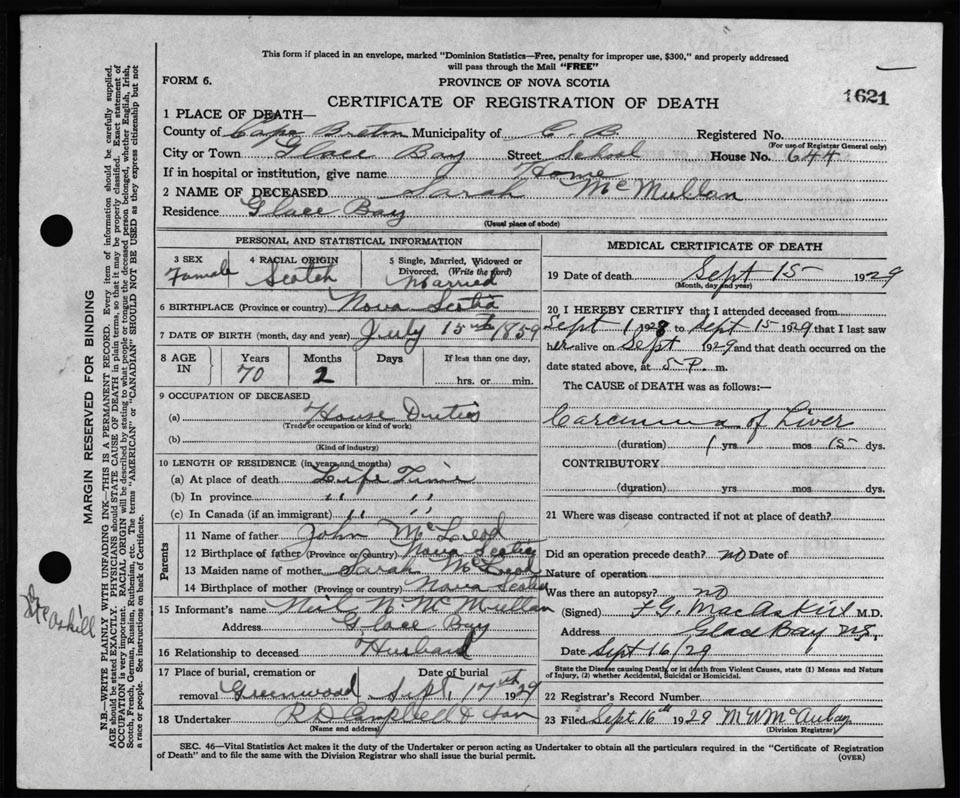 This form if placed in an envelope, marked "Dominion Statistics—Free, penalty for improper use, $300," and properly addressed
will pass through the Mail "FREE"
FORM 6.
PROVINCE OF NOVA SCOTIA
CERTIFICATE OF REGISTRATION OF DEATH
1621
1 PLACE OF DEATH—
County of Cape Breton Municipality of C. B. Registered No.
(For use of Registrar General only)
City or Town Glace Bay Street School House No. 644
If in hospital or institution, give name Home
2 NAME OF DECEASED Sarah McMullan
Residence Glace Bay
(Usual place of abode)
PERSONAL AND STATISTICAL INFORMATION
3 SEX Female
4 RACIAL ORIGIN Scotch
5 Single, Married, Widowed or Divorced. (Write the word) Married
6 BIRTHPLACE (Province or country) Nova Scotia
7 DATE OF BIRTH (month, day and year) July 15th 1859
8 AGE IN Years 70 Months 2 Days If less than one day, hrs. or min.
9 OCCUPATION OF DECEASED
(a) House Duties
(Trade or occupation or kind of work)
(b)
(Kind of industry)
10 LENGTH OF RESIDENCE (in years and months)
(a) At place of death Life Time
(b) In province " "
(c) In Canada (if an immigrant) " "
Parents
11 Name of father John McLeod
12 Birthplace of father (Province or Country) Nova Scotia
13 Maiden name of mother Sarah McLeod
14 Birthplace of mother (Province or country) Nova Scotia
15 Informant's name Neil N. McMullan
Address Glace Bay
16 Relationship to deceased Husband
17 Place of burial, cremation or removal Greenwood Date of burial Sept. 17th 1929
18 Undertaker R D Campbell & Son
(Name and address)
MEDICAL CERTIFICATE OF DEATH
19 Date of death Sept 15 1929
(Month, day and year)
20 I HEREBY CERTIFY that I attended deceased from
Sept 1 1928 to Sept 15 1929 that I last saw
her alive on Sept 1929 and that death occurred on the
date stated above, at 5 P. m.
The CAUSE of DEATH was as follows:—
Carcinoma of Liver
(duration) 1 yrs. mos 15 dys.
CONTRIBUTORY
(duration) yrs. mos. dys.
21 Where was disease contracted if not at place of death?
Did an operation precede death? no Date of
Nature of operation
Was there an autopsy? no
(Signed) F G. MacAskill M.D.
Address Glace Bay N.S.
Date Sept 16/29
State the Disease causing Death, or in death from Violent Causes, state (1) Means and Nature
of Injury, (2) whether Accidental, Suicidal or Homicidal.
22 Registrar's Record Number
23 Filed Sept 16th 1929 M W McAulay
(Division Registrar)
SEC. 46—Vital Statistics Act makes it the duty of the Undertaker or person acting as Undertaker to obtain all the particulars required in the "Certificate of Registration
of Death" and to file the same with the Division Registrar who shall issue the burial permit.
(OVER)
MARGIN RESERVED FOR BINDING
N.B.—WRITE PLAINLY WITH UNFADING INK—THIS IS A PERMANENT RECORD. Every item of information should be carefully supplied.
AGE should be stated EXACTLY. PHYSICIANS should STATE CAUSE OF DEATH in plain terms, so that it may be properly classified. Exact statement of
OCCUPATION is very important. RACIAL ORIGIN will be described by stating to what people or tongue the deceased person belonged, whether English, Irish,
Scotch, French, German, Russian, Ruthenian, etc. The terms "AMERICAN" or "CANADIAN" SHOULD NOT BE USED as they express citizenship but not
a race or people. See instructions on back of Certificate.